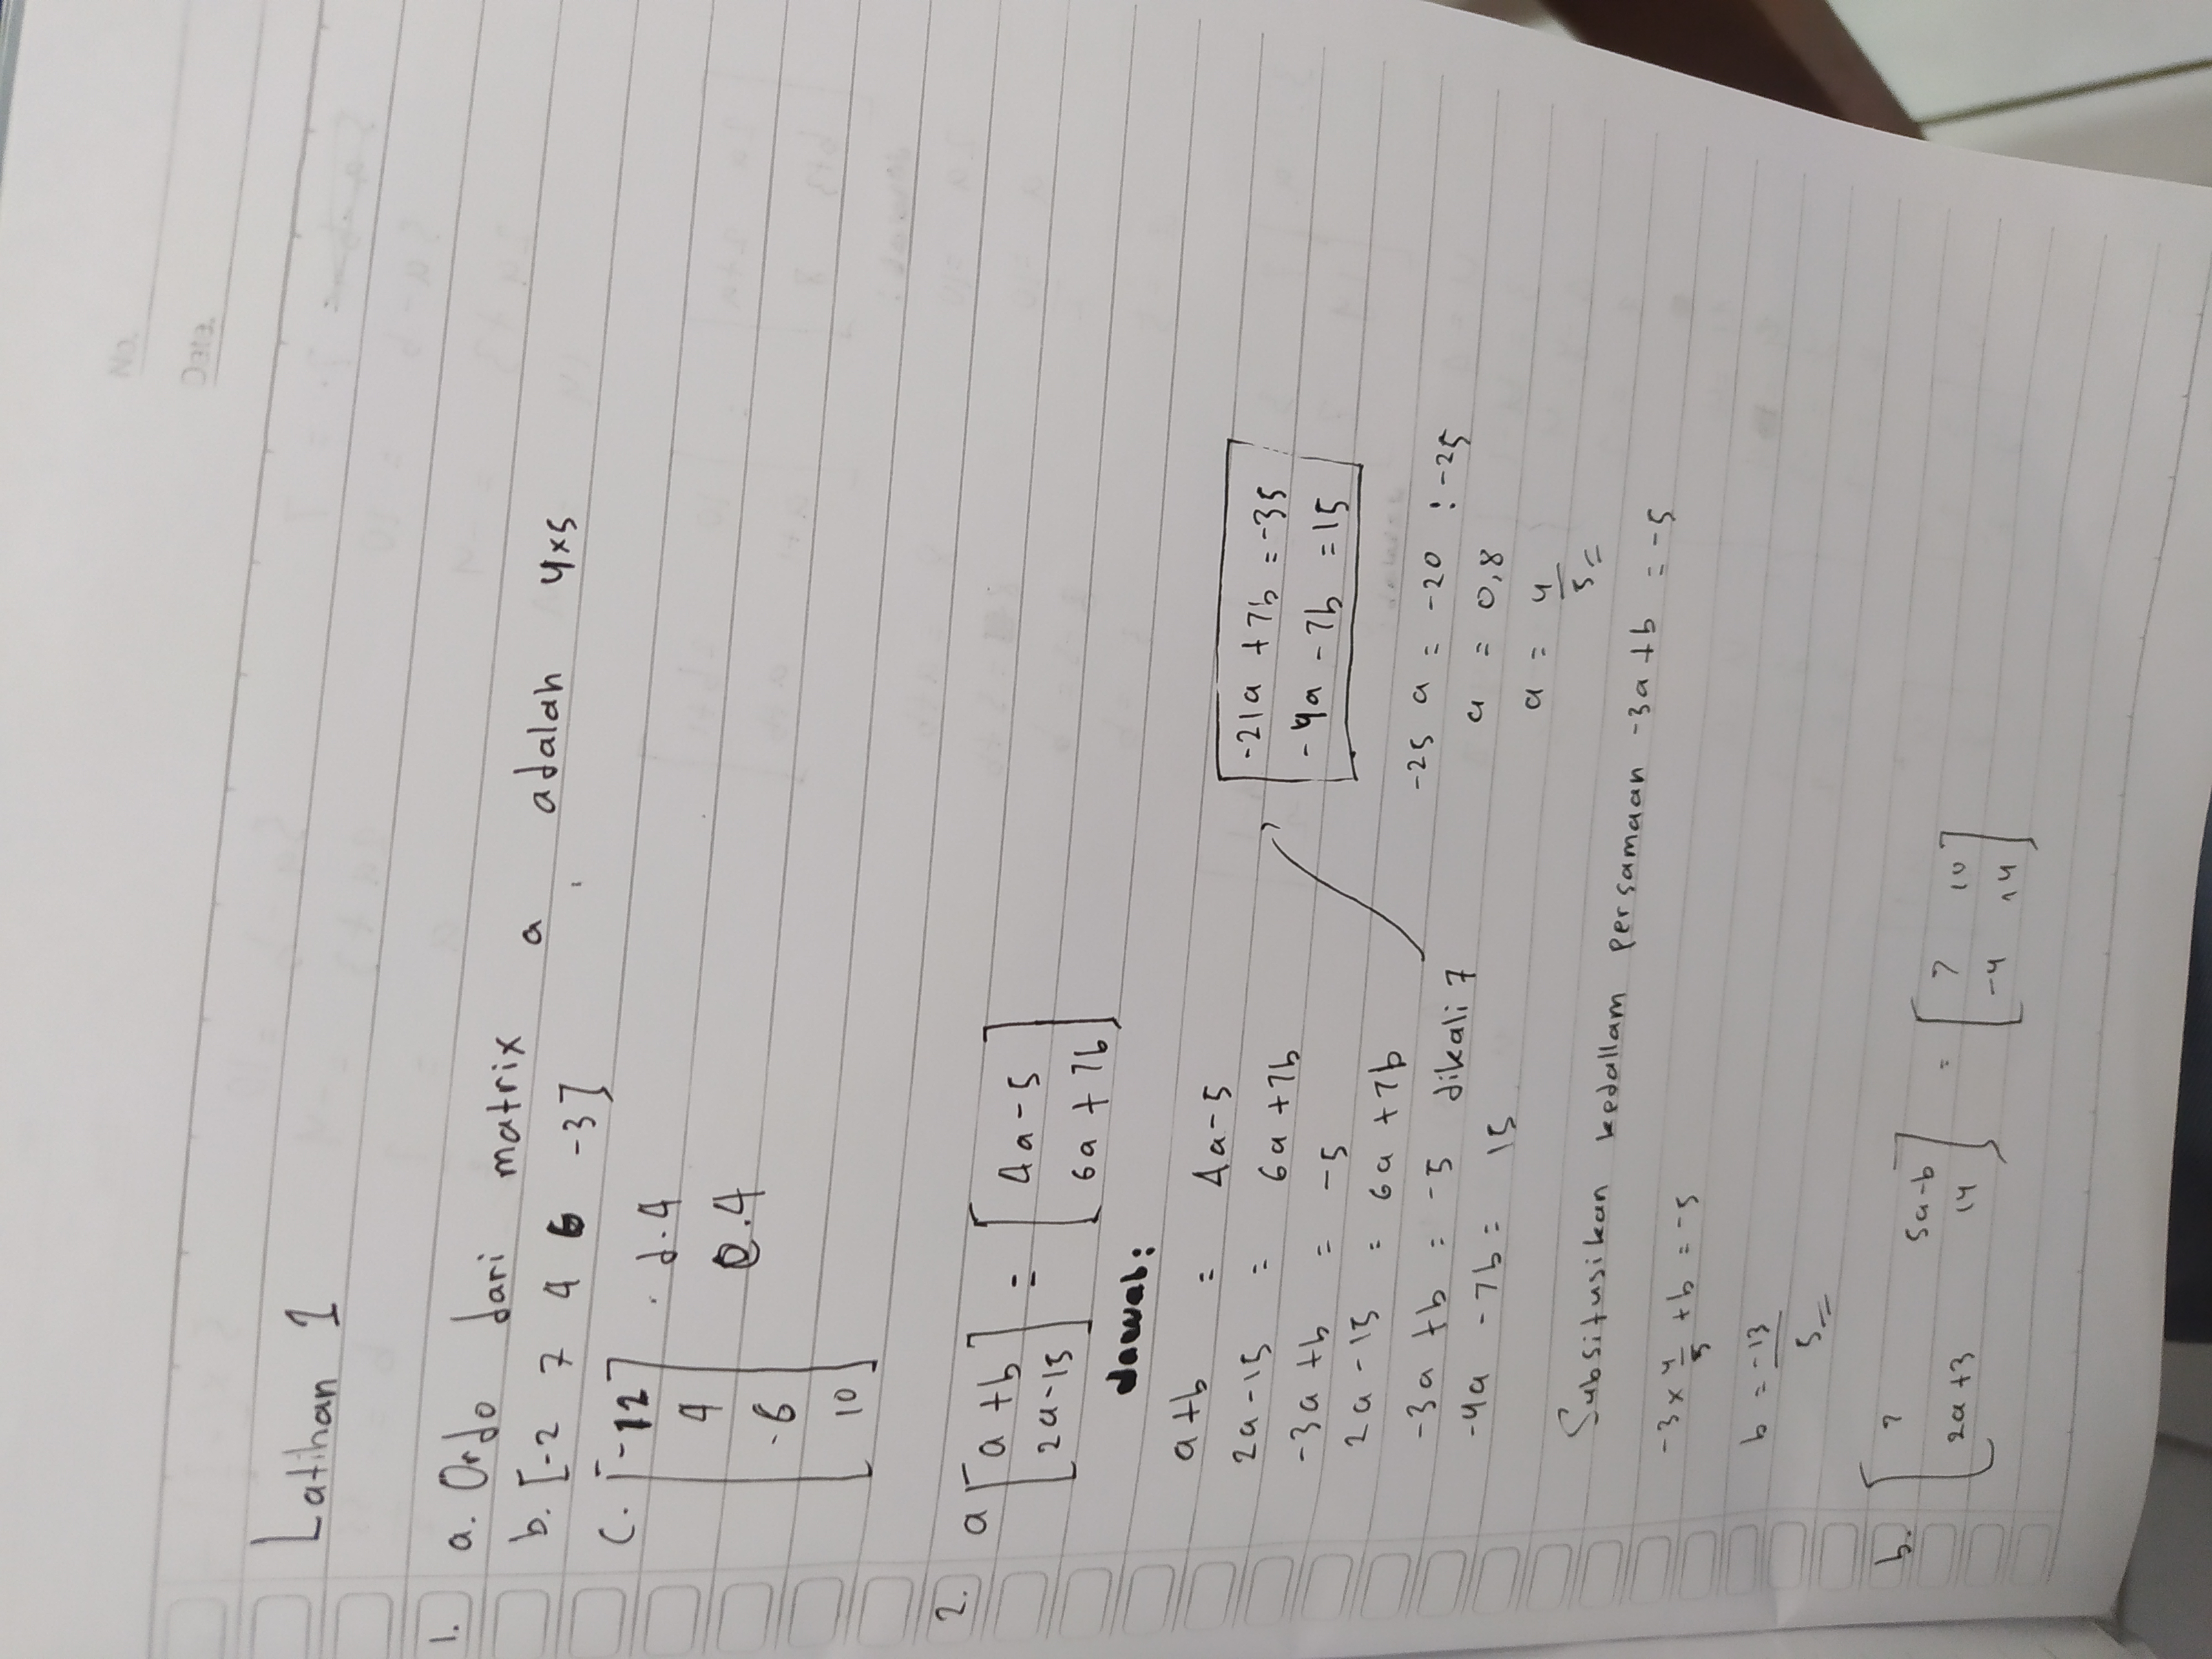 Latihan 1
1. a. Ordo dari matrix a adalah 4x5
b. [-2 7 4 6 -3]
c. [-12
4
-6
10]
d. 4
e. 4
2. a [a+b
2a-15] = [4a-5
6a+7b]
Jawab:
a+b = 4a-5
2a-15 = 6a+7b
-3a+b = -5
2a-15 = 6a+7b
-3a+b = -5 dikali 7
-4a-7b = 15
-21a+7b = -35
-4a-7b = 15
-25 a = -20 : -25
a = 0,8
a = 4/5
Subsitusikan kedallam persamaan -3a+b = -5
-3 x 4/5 + b = -5
b = -13/5
b. [7 5a-b
2a+3 14] = [7 10
-4 14]